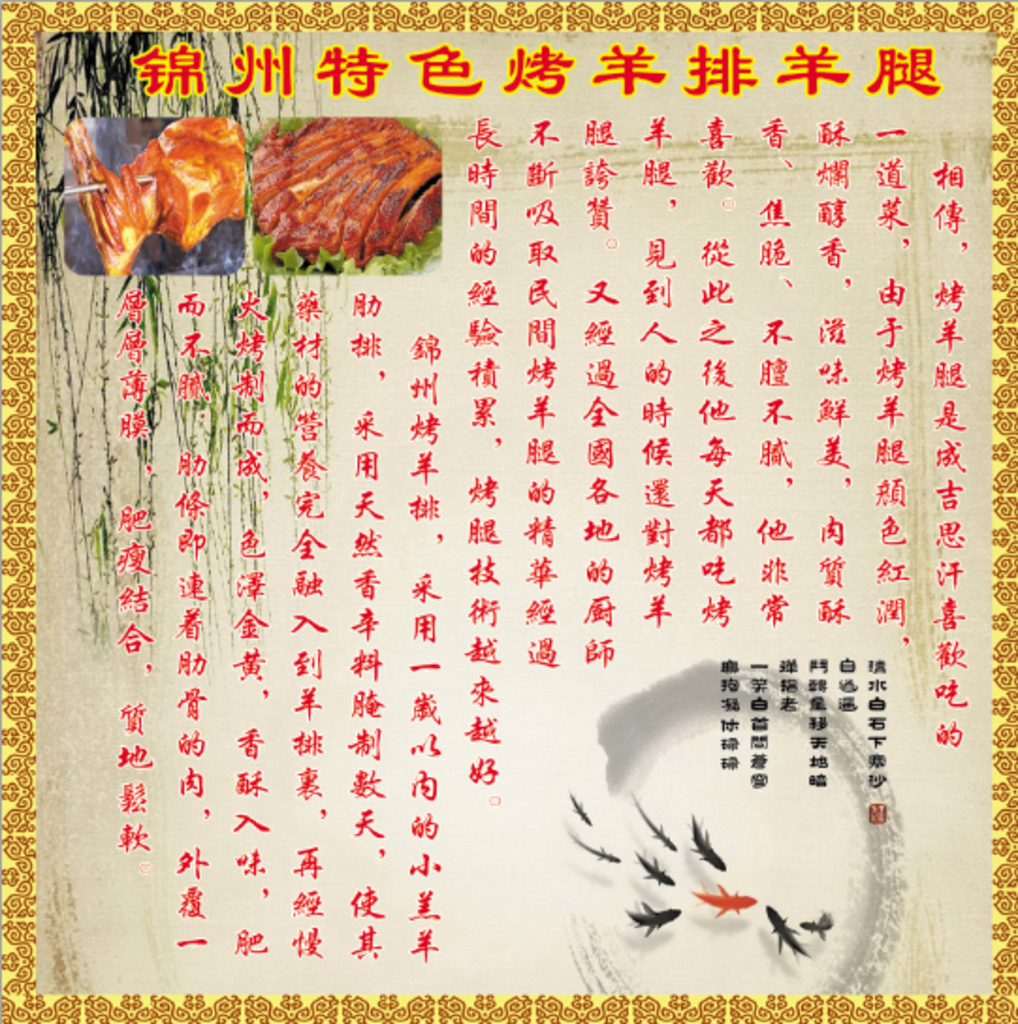 锦州特色烤羊排羊腿
相傳，烤羊腿是成吉思汗喜歡吃的
一道菜，由于烤羊腿顔色紅潤，
酥爛醇香，滋味鮮美，肉質酥
香、焦脆、不膻不膩，他非常
喜歡。從此之後他每天都吃烤
羊腿，見到人的時候還對烤羊
腿誇贊。又經過全國各地的厨師
不斷吸取民間烤羊腿的精華經過
長時間的經驗積累，烤腿技術越來越好。
錦州烤羊排，采用一歲以内的小羔羊
肋排，采用天然香辛料腌制數天，使其
藥材的營養完全融入到羊排裏，再經慢
火烤制而成，色澤金黄，香酥入味，肥
而不膩．肋條即連着肋骨的肉，外覆一
層層薄膜，肥瘦結合，質地鬆軟。
清水白石下
白
鬥轉星移天地暗
老
一笑白首問蒼